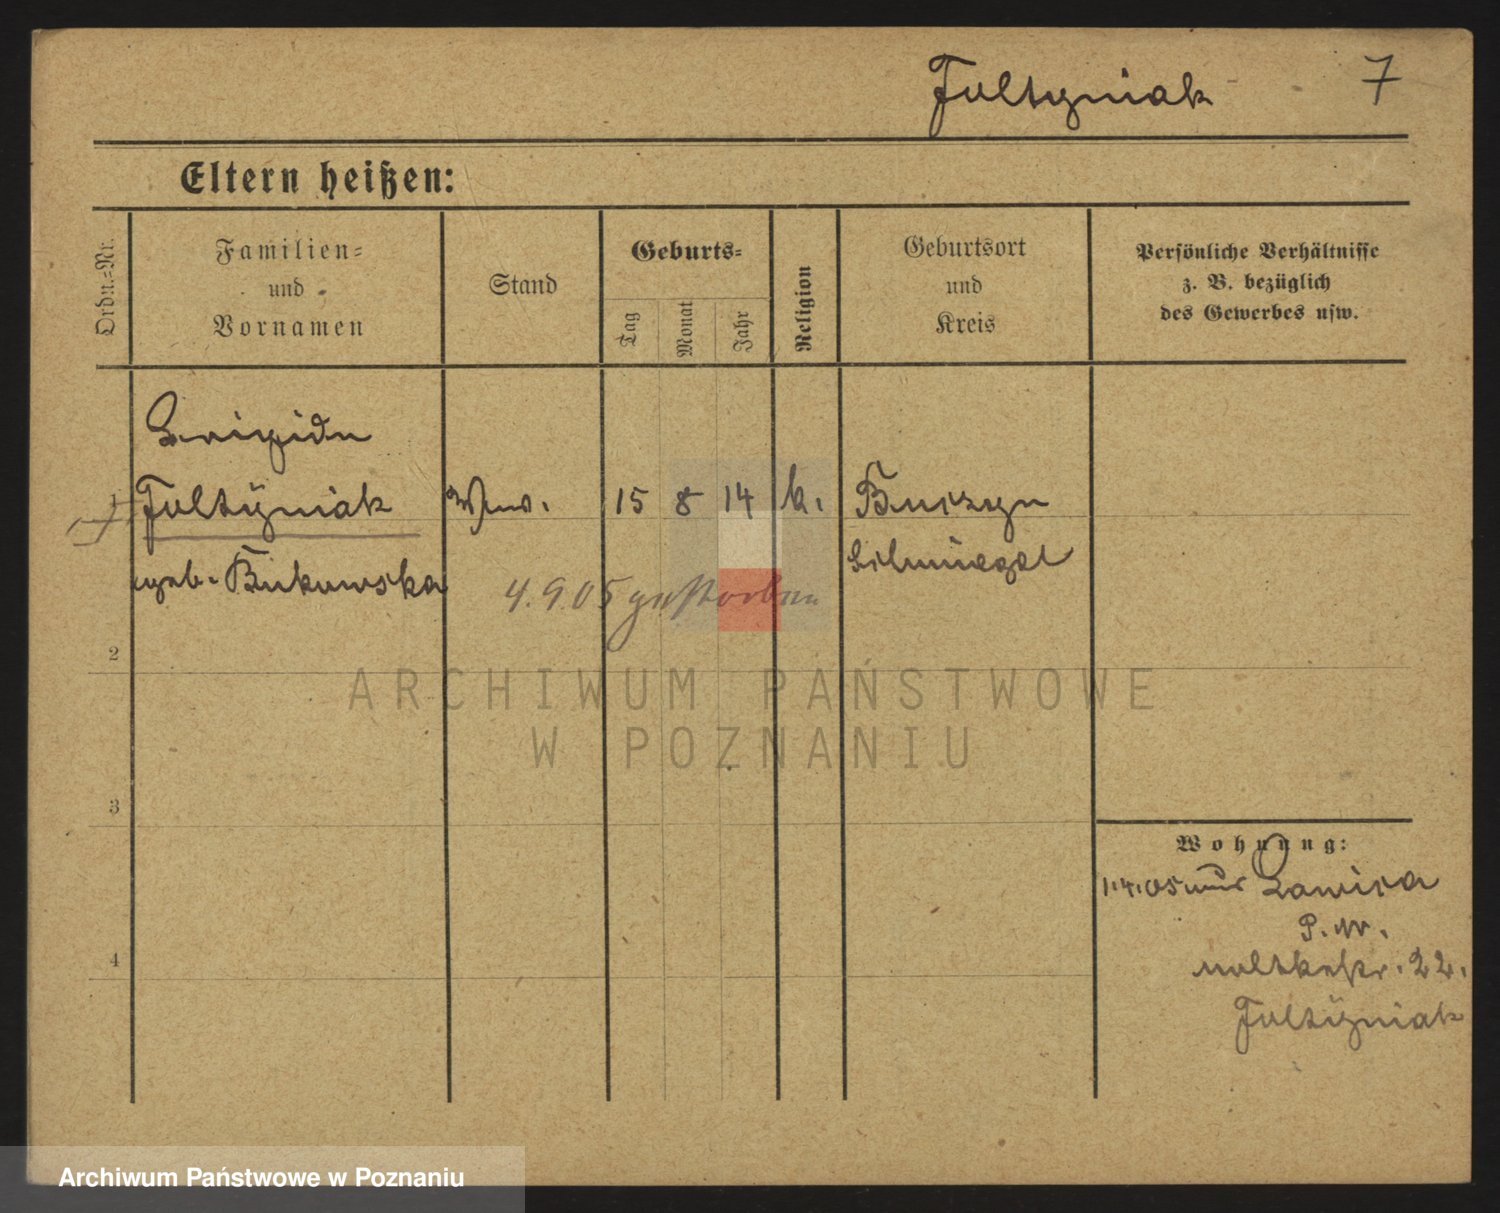 Foltyniak 7
Eltern heißen:
Ordn.-Nr.
Familien-
und
Vornamen
Stand
Geburts-
Tag
Monat
Jahr
Religion
Geburtsort
und
Kreis
Persönliche Verhältnisse
z. B. bezüglich
des Gewerbes usw.
Brigida
1 Foltÿniak Wwe. 15 8 14 k.
geb. Bukowska
Schmiegel
4.9.05 gestorben
2
ARCHIWUM PAŃSTWOWE
W POZNANIU
3
Wohnung:
1.4.05 Lawica
P. W.
Moltkestr. 22.
4
Foltÿniak
Archiwum Państwowe w Poznaniu